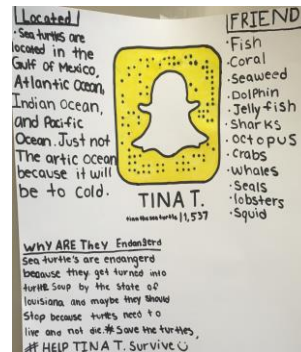 Located
• Sea turtles are
located in the
Gulf of Mexico,
Atlantic Ocean,
Indian Ocean,
and Pacific
Ocean. Just not
The artic ocean
because it will
be to cold.
FRIEND
• Fish
• Coral
• Seaweed
• Dolphin
• Jellyfish
• Sharks
• octopus
• Crabs
• whales
• Seals
• lobsters
• Squid
TINA T.
tina the sea turtle | 1,537
WHY ARE They Endangerd
Sea turtle's are endangerd
because they get turned into
turtle Soup by the State of
louisiana and maybe they should
Stop because turtles need to
live and not die. # Save the turtles,
# HELP TINA T. Survive